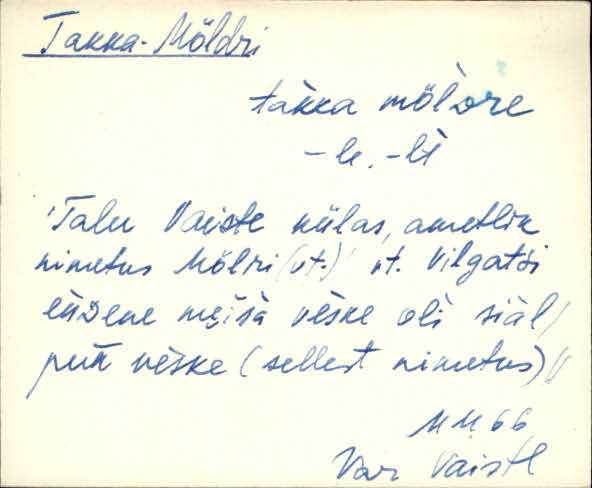 Takka-Möldri
takka mölDre
-le, -lt
'Talu Vaiste külas, ametlik
nimetus Möldri (vt.)' vt. Vilgatsi
enDene meisa veske oli siäl /
puu veske (sellest nimetus) //
MM 66
Var Vaiste